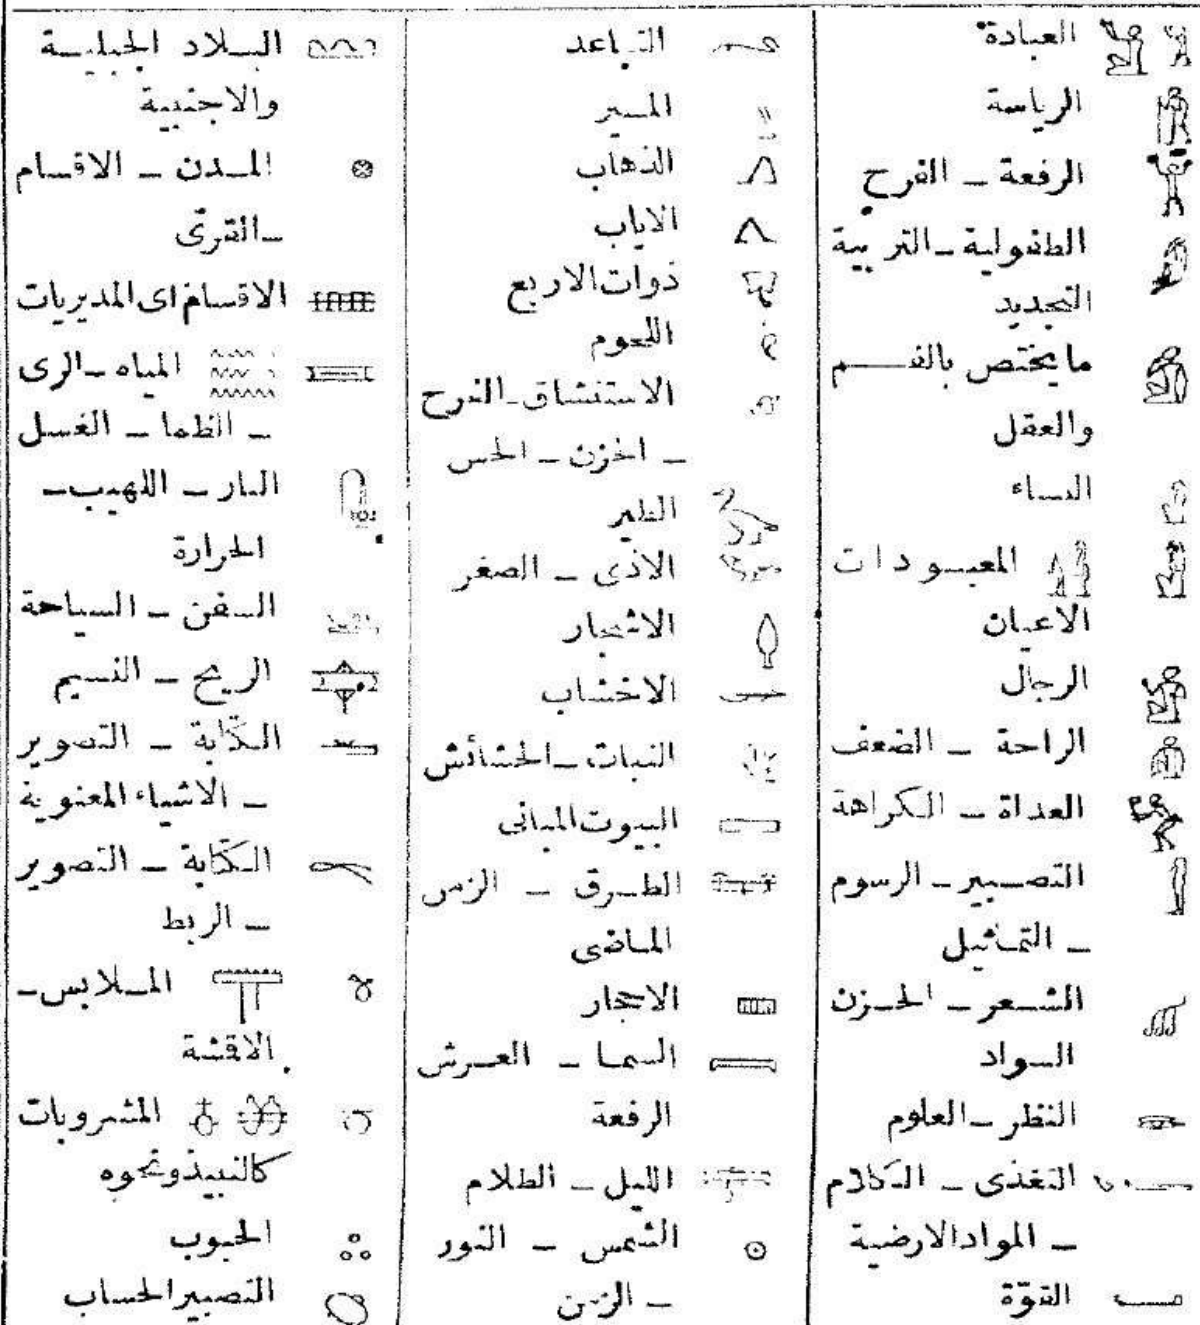 العبادة
الرياسة
الرفعة ـ الفرح
الطفولية ـ التربية
التجديد
ما يختص بالفـم
والعقل
النساء
المعبودات
الاعيان
الرجال
الراحة ـ الضعف
العداة ـ الكراهة
التصبير ـ الرسوم
ـ التماثيل
الشعر ـ الحزن
السواد
النظر ـ العلوم
التغذى ـ الكلام
ـ المواد الارضية
القوّة
التباعد
المسير
الذهاب
الاياب
ذوات الاربع
اللحوم
الاستنشاق ـ الفرح
ـ الحزن ـ الحس
الطير
الاذى ـ الصغر
الاشجار
الاخشاب
النبات ـ الحشائش
البيوت المبانى
الطرق ـ الزمن
الماضى
الاحجار
السما ـ العرش
الرفعة
الليل ـ الظلام
الشمس ـ النور
ـ الزمن
البلاد الجبلية
والاجنبية
المدن ـ الاقسام
ـ القرى
الاقسام اى المديريات
المياه ـ الرى
ـ الظما ـ الغسل
النار ـ اللهيب ـ
الحرارة
السفن ـ السياحة
الريح ـ النسيم
الكتابة ـ التصوير
ـ الاشياء المعنوية
الكتابة ـ التصوير
ـ الربط
الملابس ـ
الاقشة
المشروبات
كالنبيذ ونحوه
الحبوب
التصبير الحساب